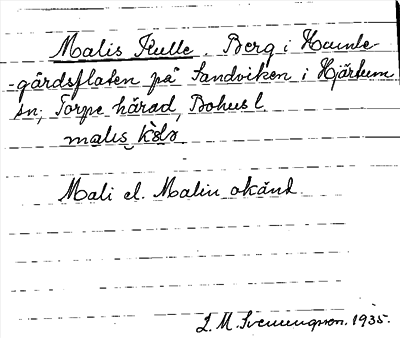 Malis Kulle. Berg i Hamle-
-gärdsflaten på Sandviken i Hjärtum
sn; Torpe härad, Bohusl.
malis
Mali el. Malin okänd
L. M. Svenungsson. 1935.